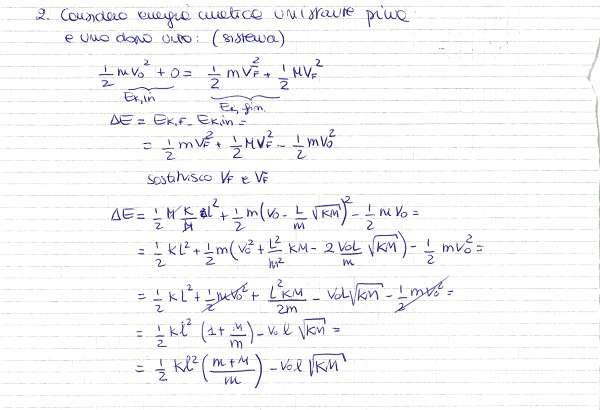 2. Considero energia cinetica un istante prima
e uno dopo urto: (sistema)
1/2 mv₀² + 0 = 1/2 mv̄_F² + 1/2 MV_F²
E_K,in E_K,fin
ΔE = E_K,F - E_K,in =
= 1/2 mv̄_F² + 1/2 MV_F² - 1/2 mv₀²
sostituisco V_F e v̄_F
ΔE = 1/2 M K/M l² + 1/2 m(v₀ - l/m √KM)² - 1/2 mv₀ =
= 1/2 Kl² + 1/2 m(v₀² + l²/m² KM - 2 v₀l/m √KM) - 1/2 mv₀² =
= 1/2 Kl² + 1/2 mv₀² + l²KM/2m - v₀l√KM - 1/2 mv₀² =
= 1/2 Kl² (1 + M/m) - v₀l √KM =
= 1/2 Kl² (m+M/m) - v₀l √KM